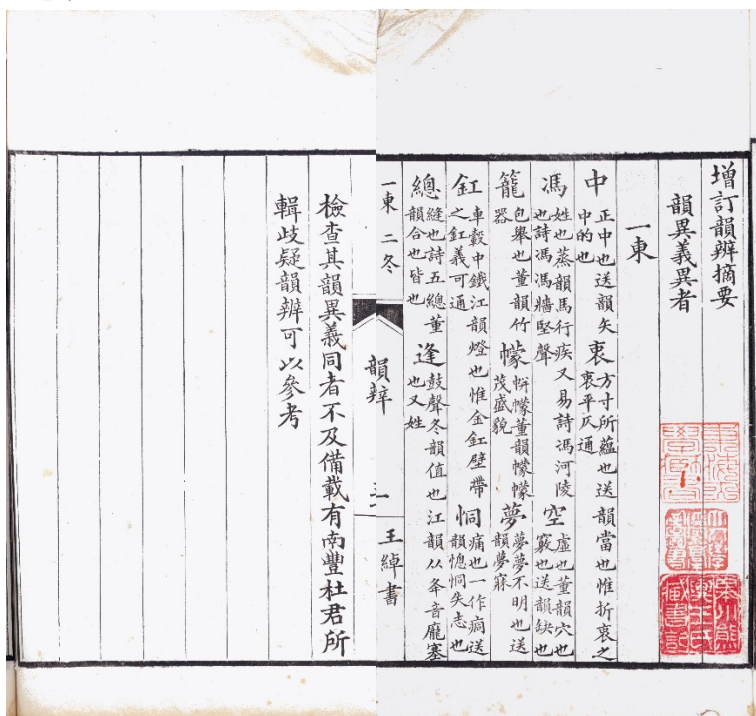 增訂韻辨摘要
韻異義異者
一東
中正中也送韻矢中的也衷方寸所蘊也送韻當也惟折衷之衷平仄通
馮姓也蒸韻馬行疾又易詩馮河陵也詩馮馮牆堅聲空虛也董韻穴也竅也送韻缺也
籠包舉也董韻竹器幪帡幪董韻幪幪茂盛貌夢夢夢不明也送韻夢寐
釭車轂中鐵江韻燈也惟金釭壁帶之釭義可通恫痛也一作痌送韻憁恫失志也
總縫也詩五總董韻合也皆也逢鼓聲冬韻值也江韻从夅音龐塞也又姓
一東 二冬 韻辨 一 王綽書
檢查其韻異義同者不及備載有南豐杜君所
輯歧疑韻辨可以參考